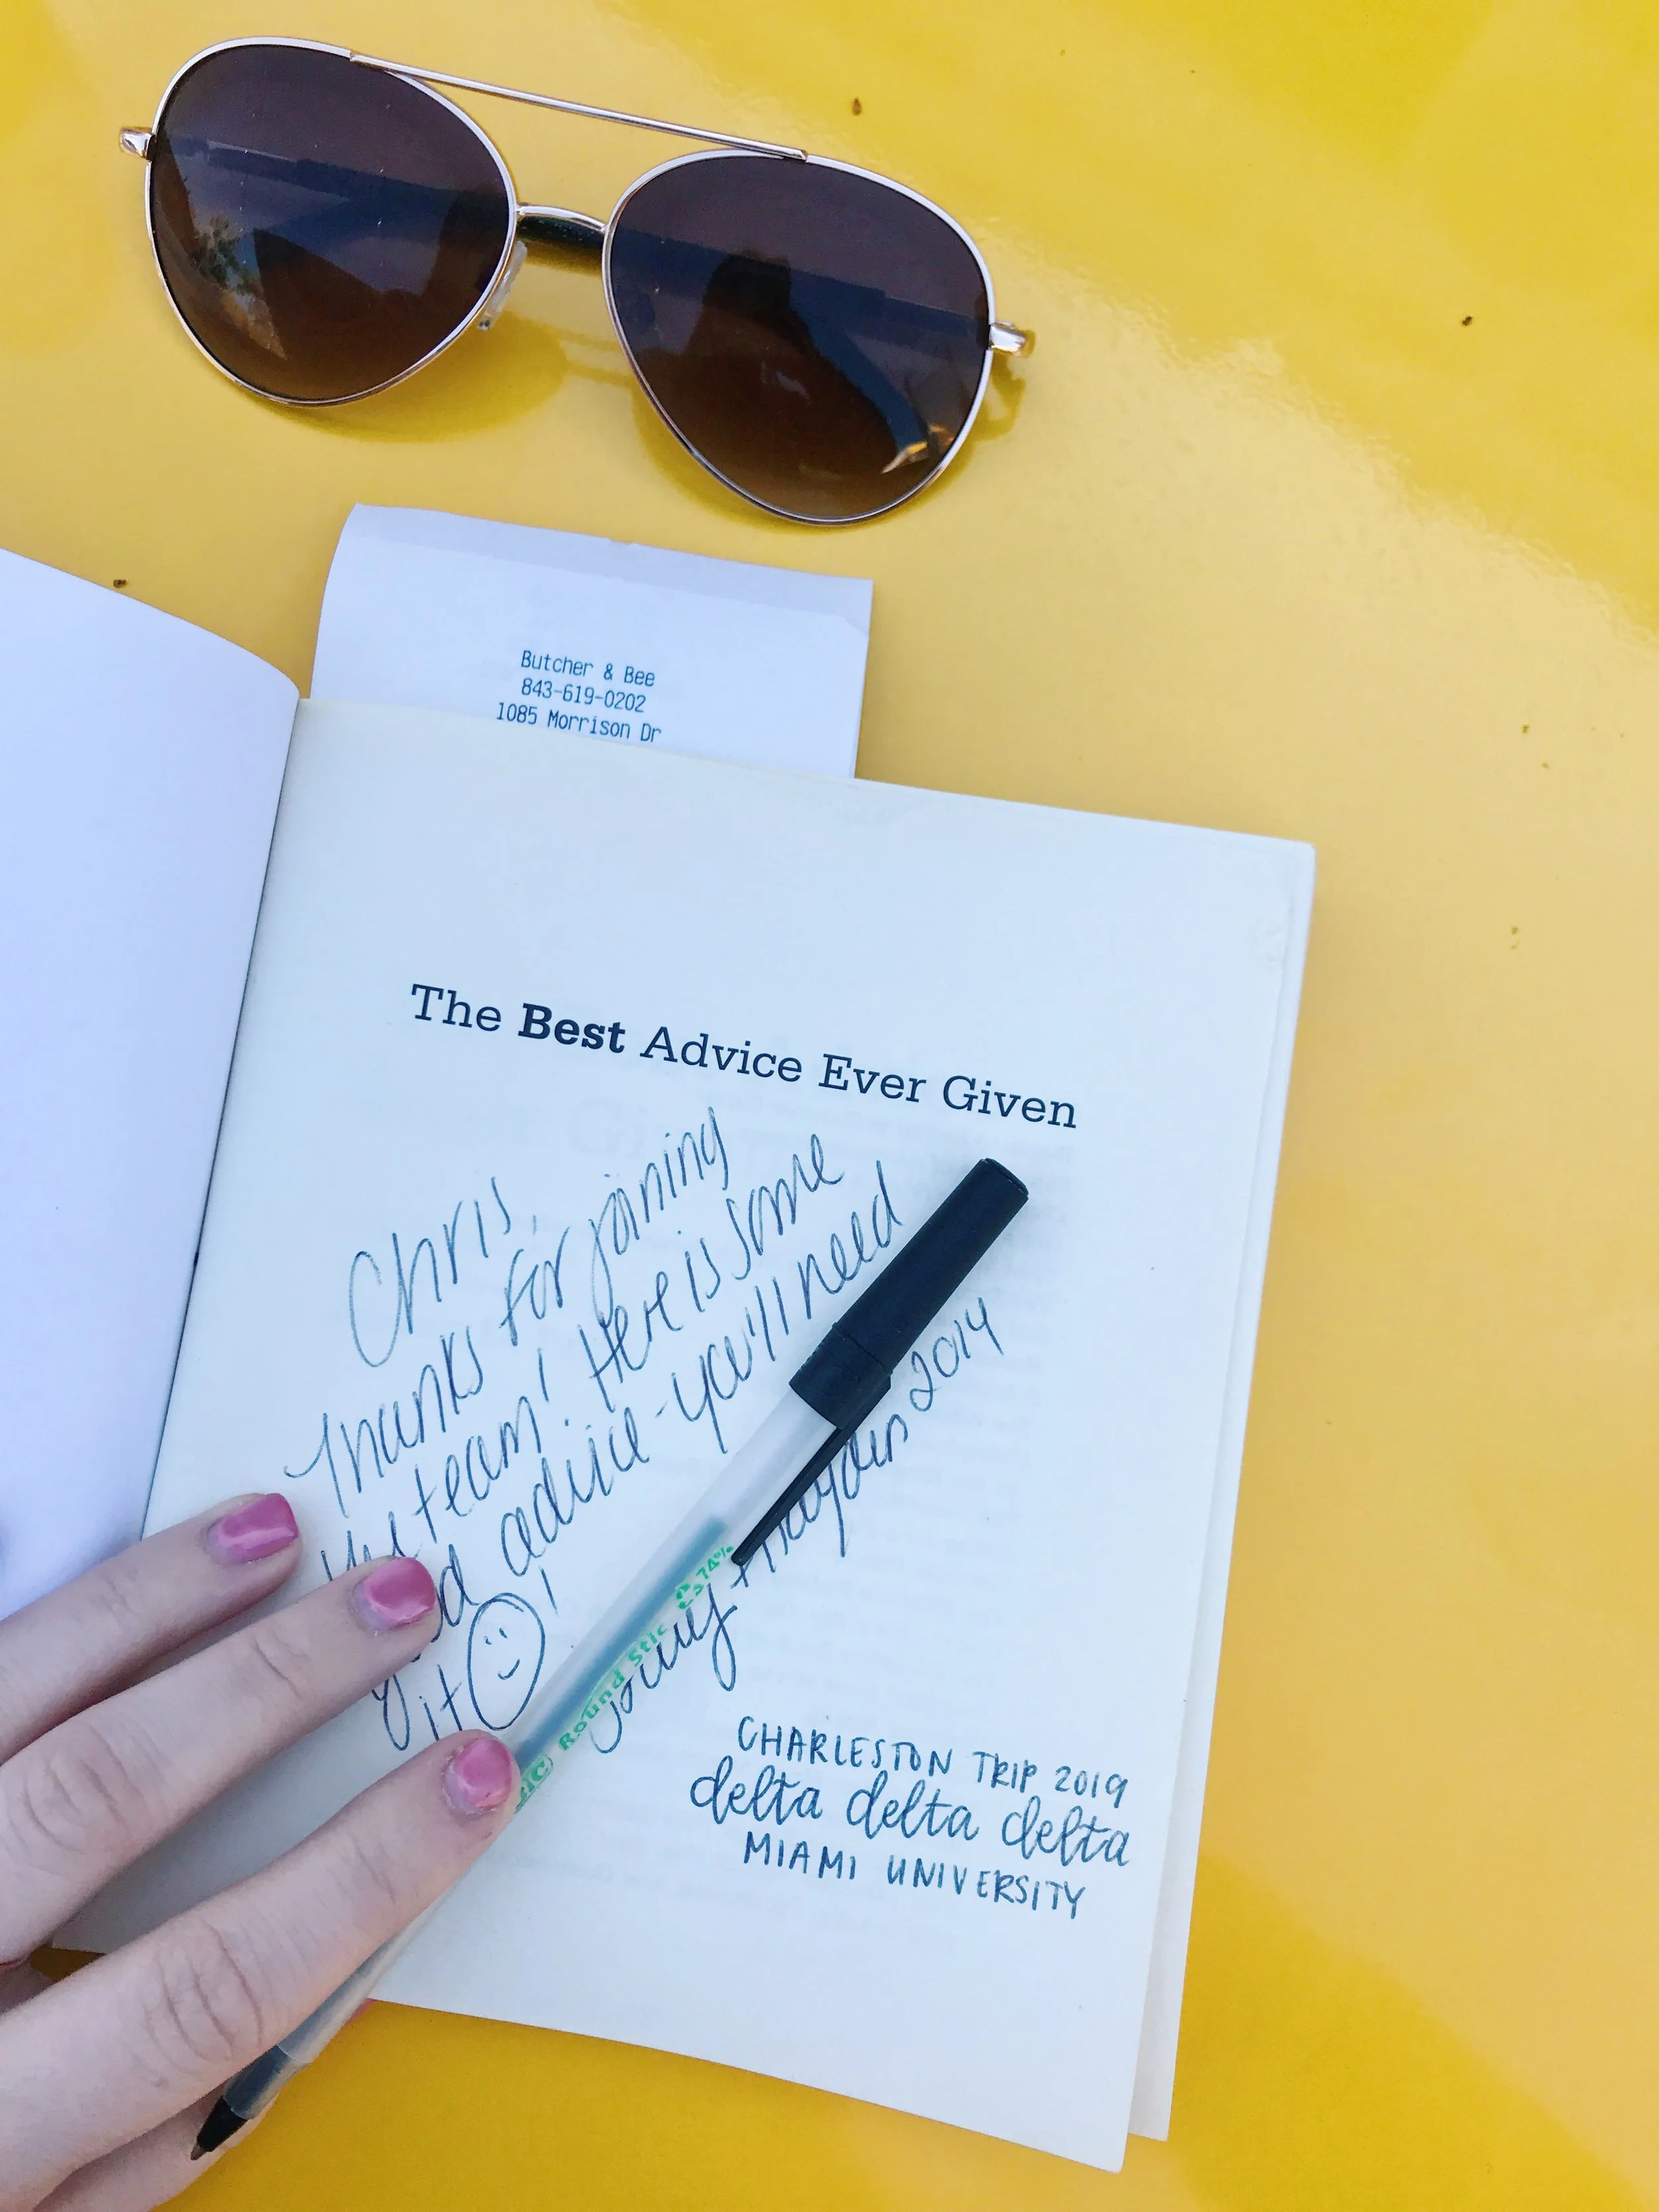 Butcher & Bee
843-619-0202
1085 Morrison Dr
The Best Advice Ever Given
Chris,
Thanks for joining
team! Here is some
advice - you'll need
it!
2014
CHARLESTON TRIP 2019
delta delta delta
MIAMI UNIVERSITY
BIC Round Stic 74%